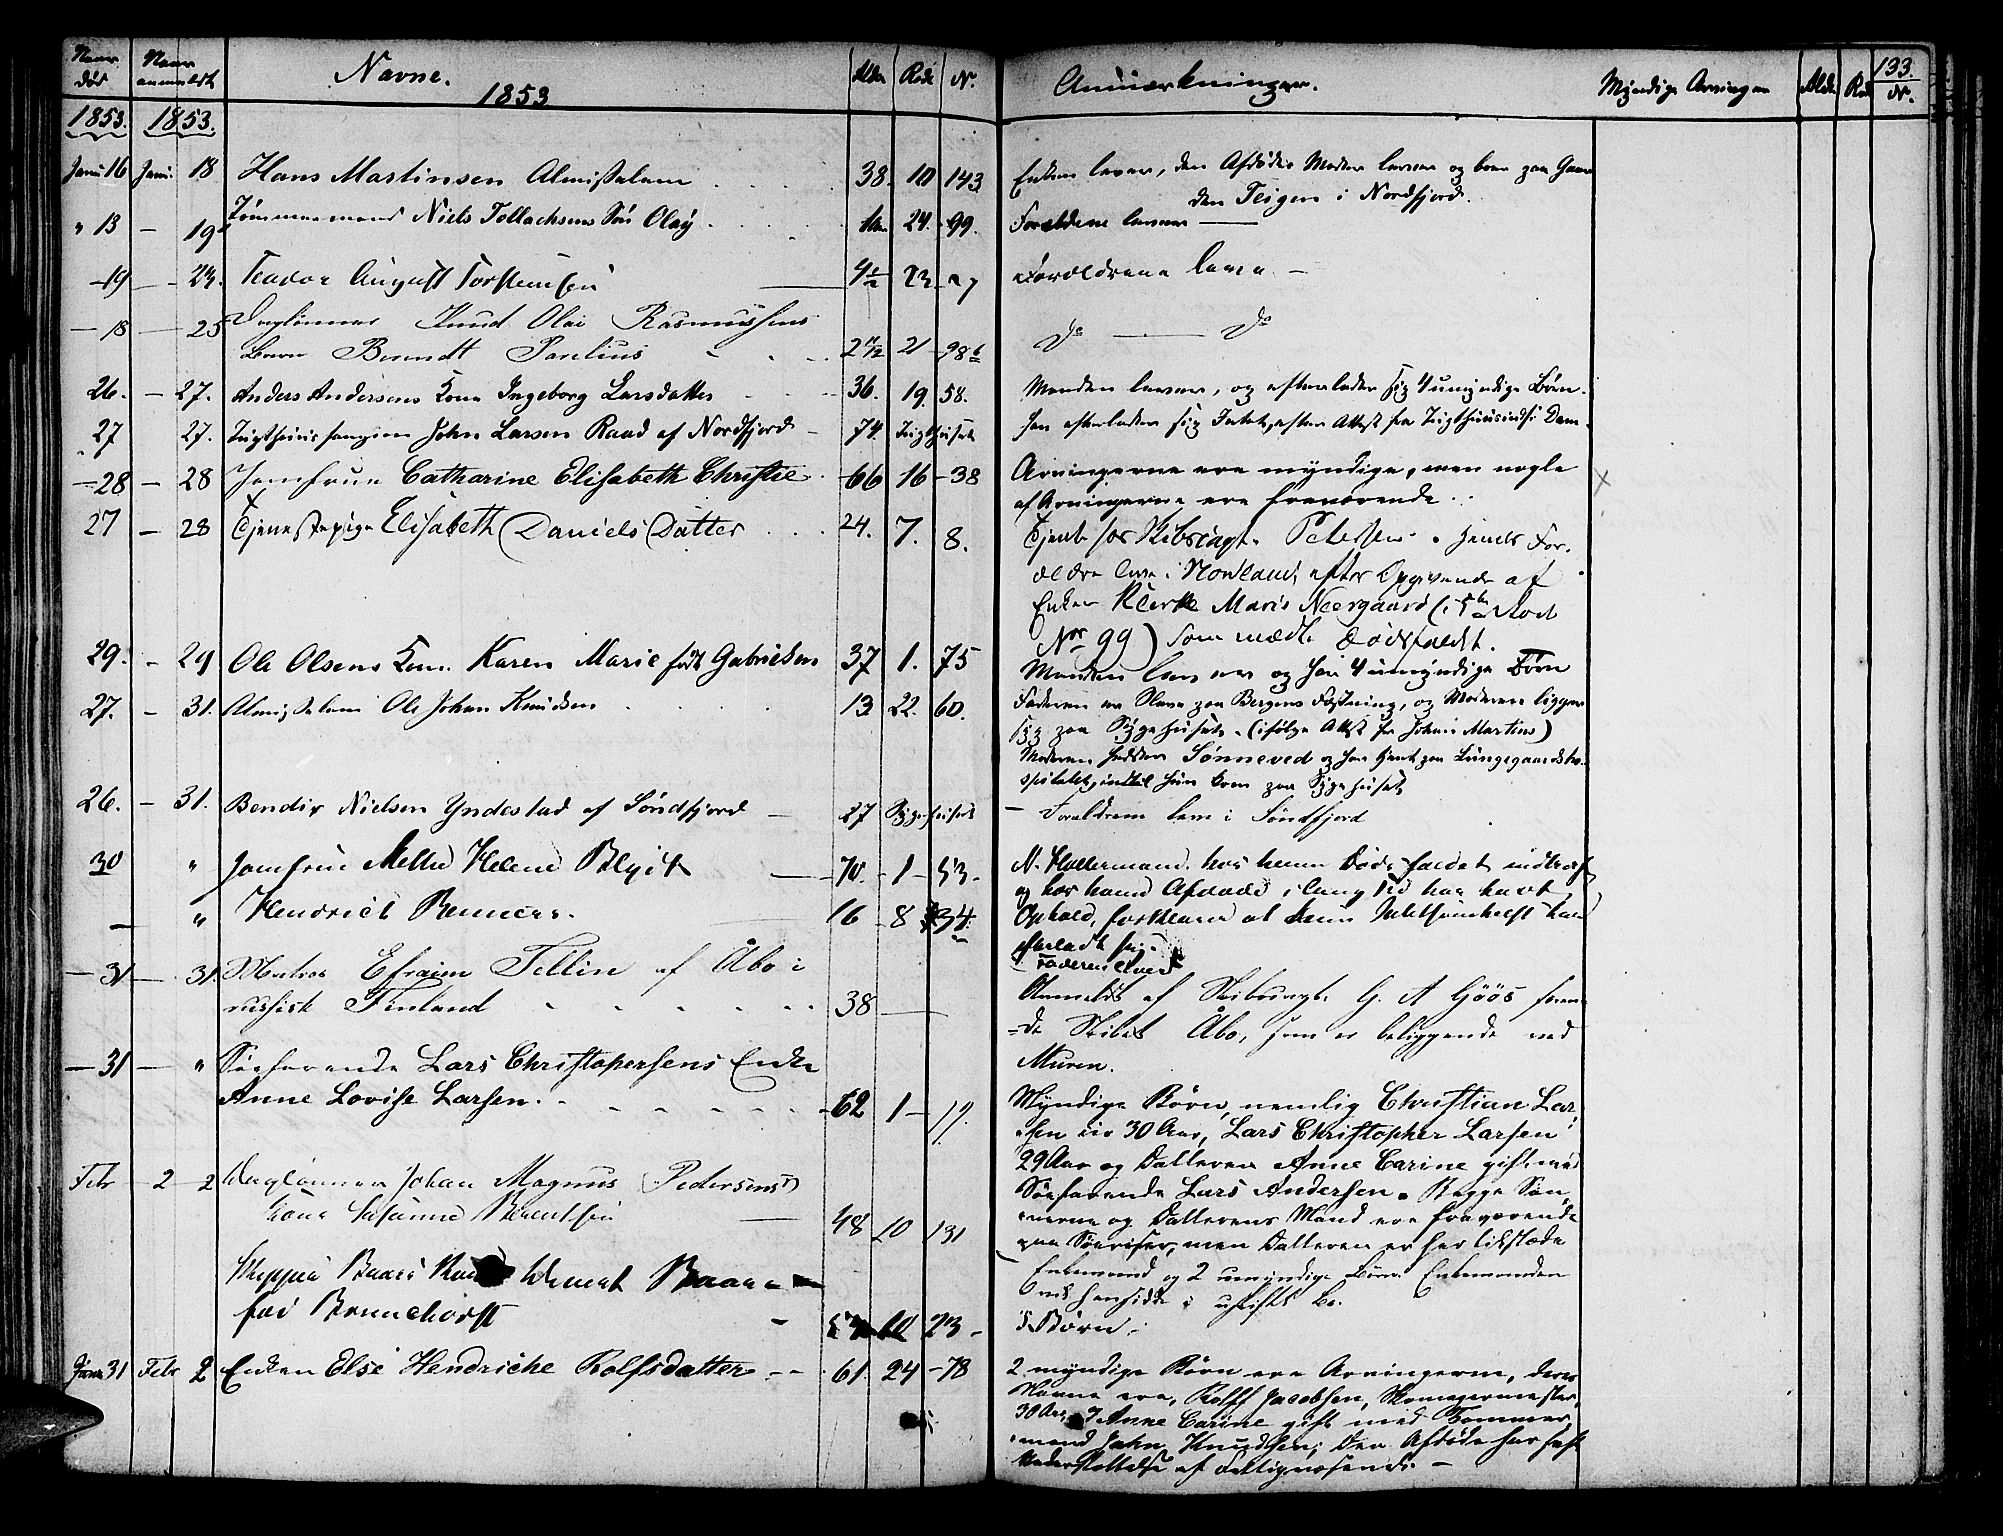 133.
Naar død Naar anmeldt Navne. Alder Rode Nr. Anmærkninger. Myndige Arvinger Alder Rode Nr.
1853
1853. 1853.
Janu 16 Janu. 18 Hans Martinsen Almisselem 38. 10 143 Enken lever, den Afdødes Moder lever og boer paa Gaar
den Teigen i Nordfjord.
" 13 — 19 Tømmermand Niels Tollachsens Søn Olay 24. 99. Forældrene lever
— 19 — 23. Teodor August Torstensen 4½ 23 Forældrene leve —
— 18 — 25 Daglønner Knud Olai Rasmussens Do Do
Barn Berendt Paulius 2 11/12 21 — 98 b
26. — 27. Anders Andersens Kone Ingeborg Larsdatter 36. 19. 58. Manden lever, og efterlader sig 4 umyndige Børn.
27 27. Tugthuusfangen John Larsen Raad af Nordfjord — 74. Tugthuset han efterlader sig Intet, efter Attest fra Tugthuusinsp. Dam.
— 28 — 28 Jomfrue Catharine Elisabeth Christie 66 16 — 38 Arvingerne ere myndige, men nogle
af Arvingerne ere fraværende.
27 — 28 Tjenestepige Elisabeth Daniels Datter 24. 7. 8. Tjent hos Skibscapt. Petersen. hendes For-
ældre leve i Nordland, efter Opgivende af
Enken Klerke Maris Neergaard (i 5te Rode
No 99) som mældte Dødsfaldet.
29. — 29 Ole Olsens Kone Karen Marie født Gabrielsen 37 1. 75 Manden lever og har 4 umyndige Børn
27. — 31. Almisselem Ole Johan Knudsen 13 22. 60. Faderen er Slave paa Bergens Fæstning, og Moderen ligger
sig paa Sygehuset. (ifølge Attest fra Johan Martins)
Moderen hedder Sønneved og har tjent paa Lungegaardsho-
spitalet, indtil hun kom paa Sygehuset
26. — 31. Bendix Nielsen Yndestad af Søndfjord — 27 Sygehuset — Forældrene leve i Søndfjord
30 " Jomfrue Mette Helene Blydt 70. — 1 — 53. N. Hollermand, hos hvem Dødsfaldet indtraf
og hos hvem Afdøde i lang tid har havt
— " Hendrich Renners. 16 8 34. Ophold, forklarer at hun Intetsomhelst har
efterladt sig.
Faderen lever
— 31 — 31. Matros Efraim Tellin af Åbo i
russisk Finland 38 — Anmeldt af Skibscapt. G. A Göös føren-
de Skibet Åbo, som er beliggende ved
Muren.
— 31 — " Søefarende Lars Christophersens Enke
Anne Lovise Larsen. 62 1 — 17. Myndige Børn, nemlig Christian Lar-
sen 30 Aar, Lars Christopher Larsen
29 Aar og Datteren Anne Carine gift med
Søefarende Lars Andersen. Begge Søn-
nerne og Datterens Mand ere fraværende
paa Søereiser, men Datteren er her tilstæde
Febr — 2 — 2 Daglønner Johan Magnus Pedersens
Kone Susanne Berentsen — 48 10 131 Enkemand og 2 umyndige Børn. Enkemanden
vil hensidde i uskiftet Bo.
Skipper Baars Kone Baars
fød Brunchorst — 53 10 23 — Børn.
Janu 31 Febr 2 Enken Else Hendriche Rolfsdatter — 61. 24 — 78 2 myndige Børn ere Arvingerne, deres
Navne ere, Rolff Jacobsen, Skomagermester,
30 Aar, Anne Carine gift med Tømmer-
mand John Knudsen; Den Afdøde har havt
Understøttelse af Fattigvæsendet —